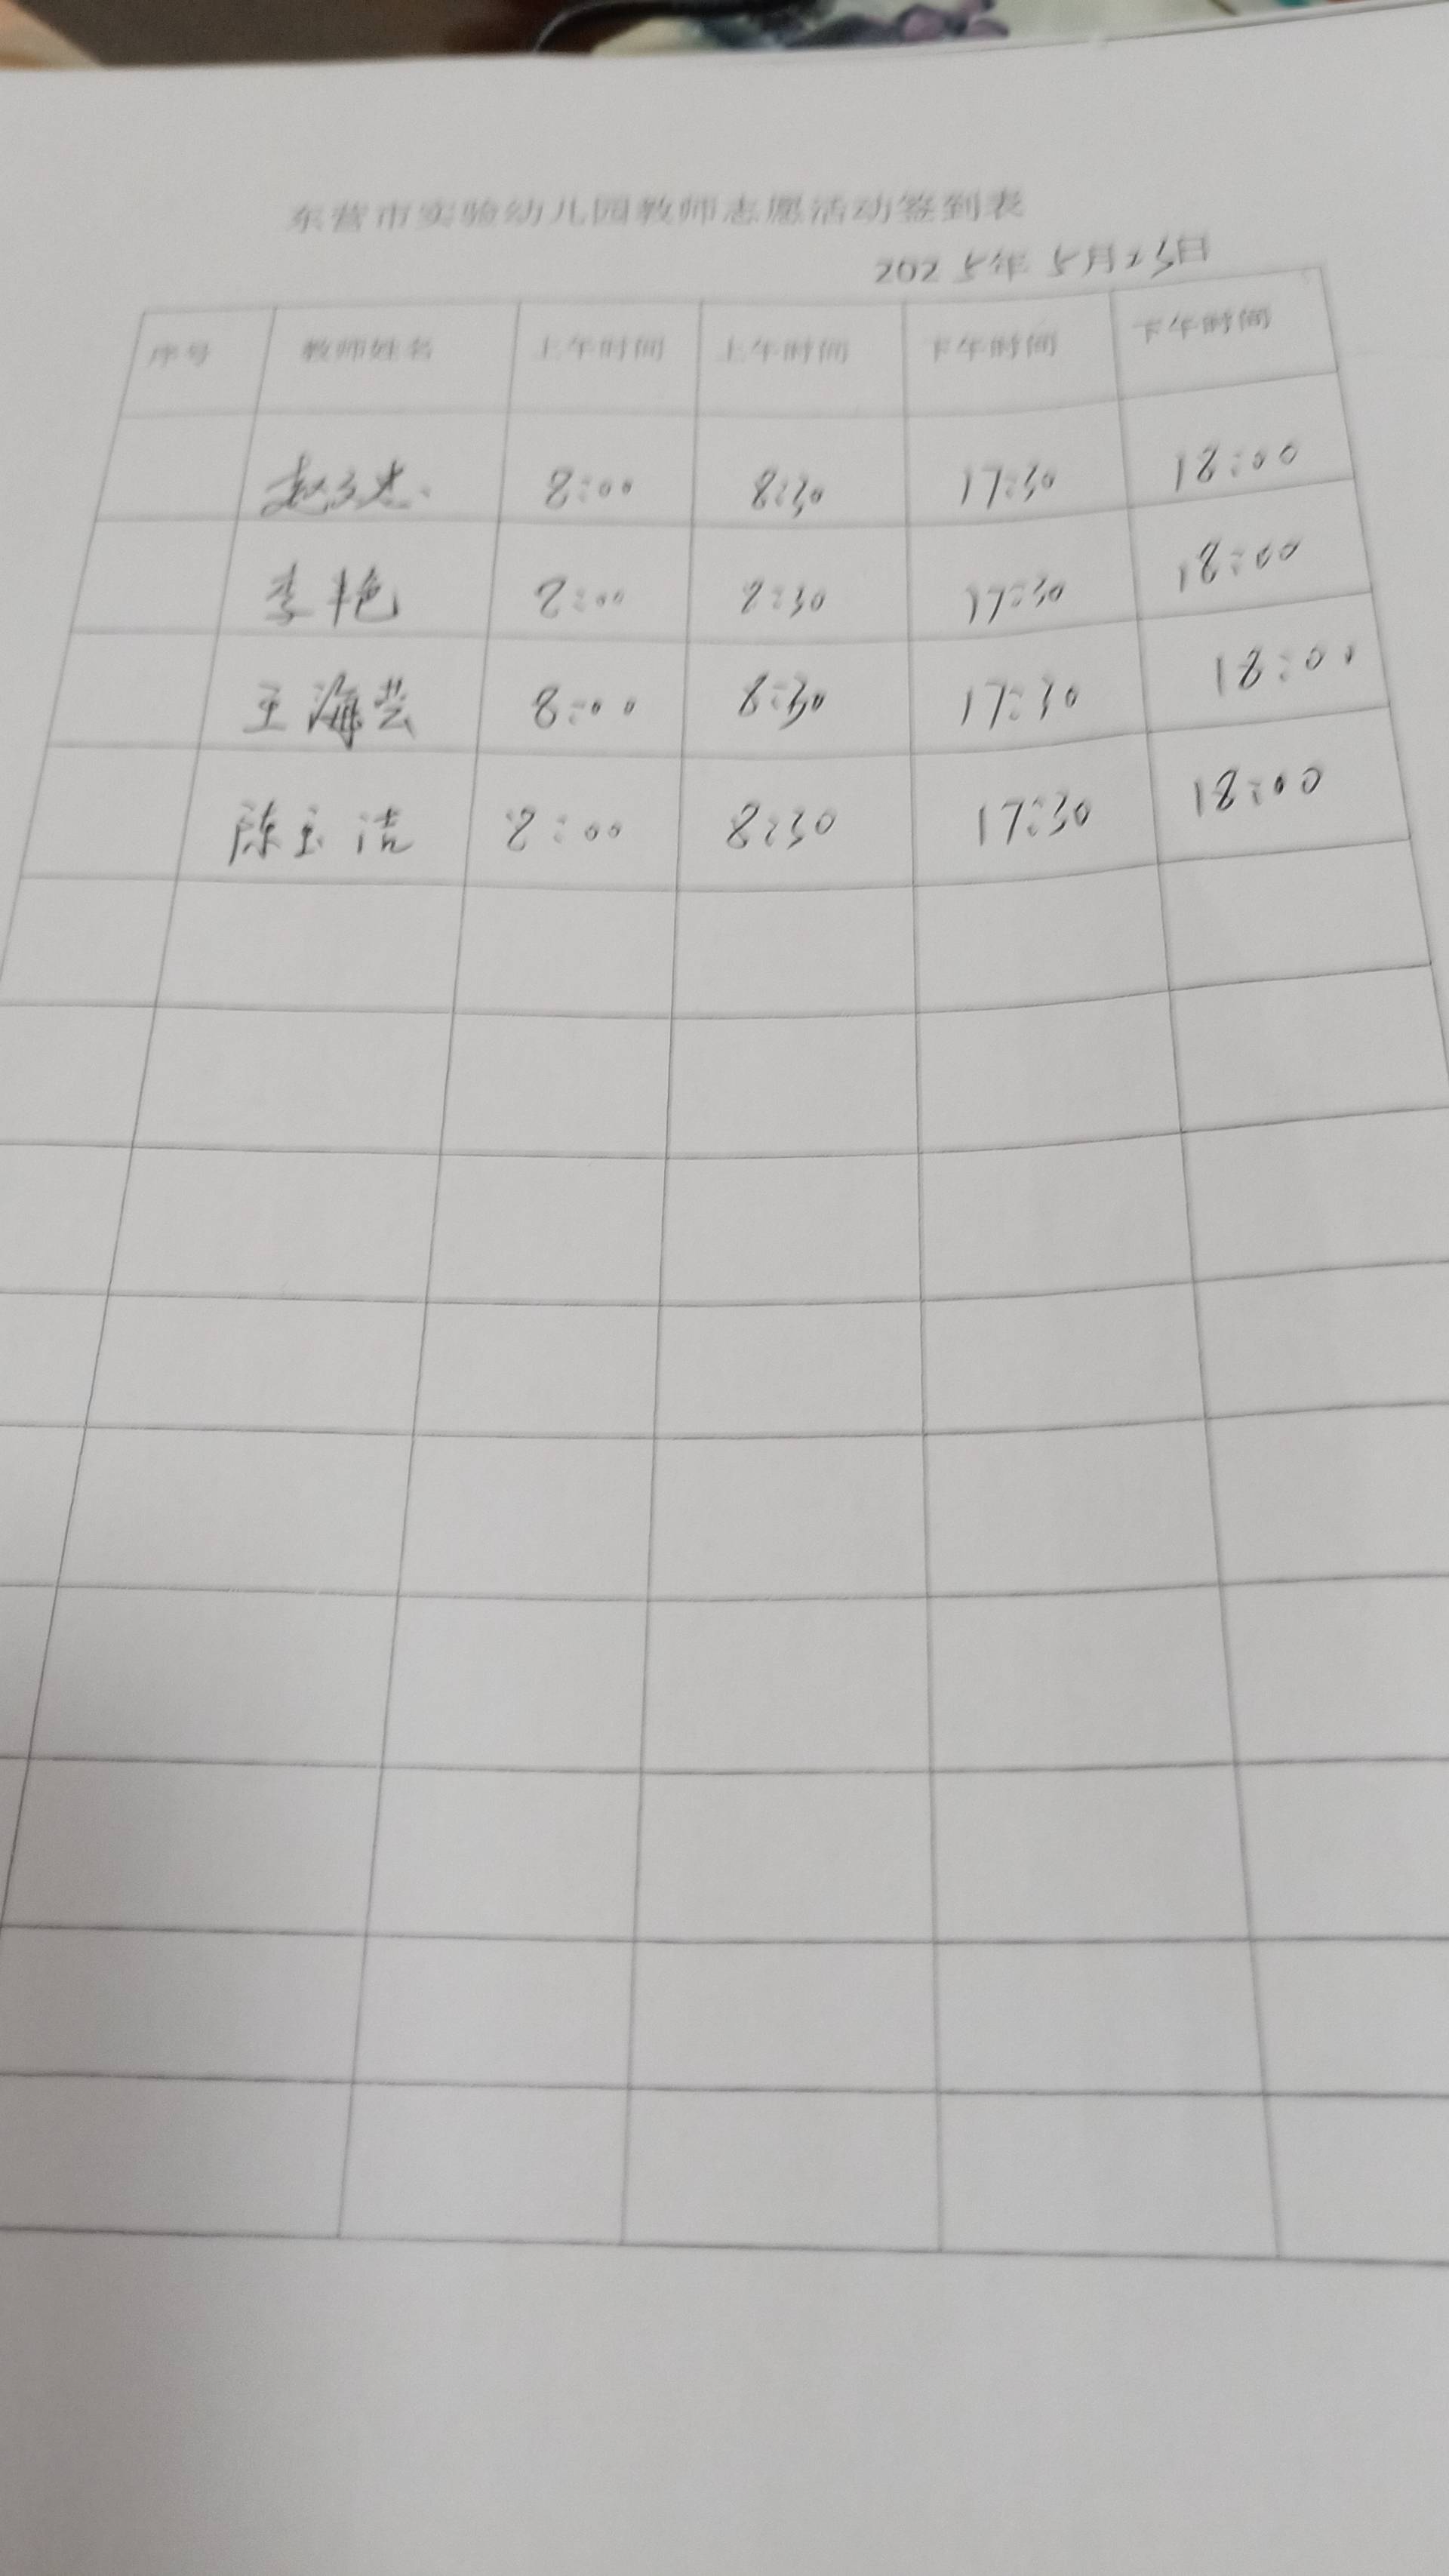 东营市实验幼儿园教师志愿活动签到表
2025年 5月23日
序号 教师姓名 上午时间 上午时间 下午时间 下午时间
赵 8:00 8:30 17:30 18:00
李艳 8:00 8:30 17:30 18:00
王海芸 8:00 8:30 17:30 18:00
陈玉洁 8:00 8:30 17:30 18:00